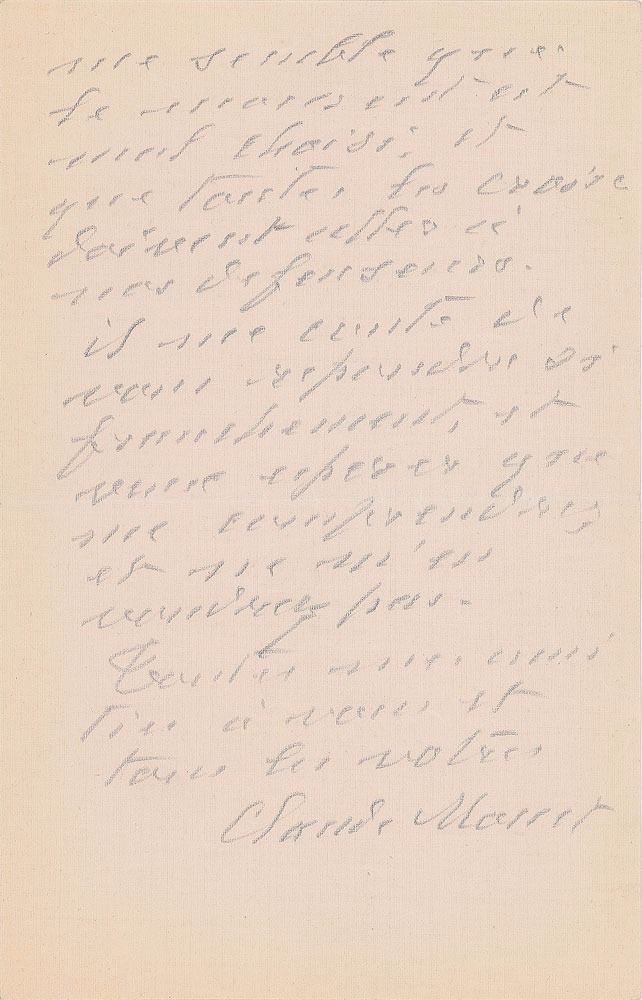 me semble que
le moment est
mal choisi, et
que toutes les croix
doivent aller à
nos défenseurs.
il me coute de
vous repondre si
franchement, et
veux esperer que
me comprendrez
et ne m'en
voudrez pas.
Toutes mes ami
tiés à vous et
tous les votres
Claude Monet